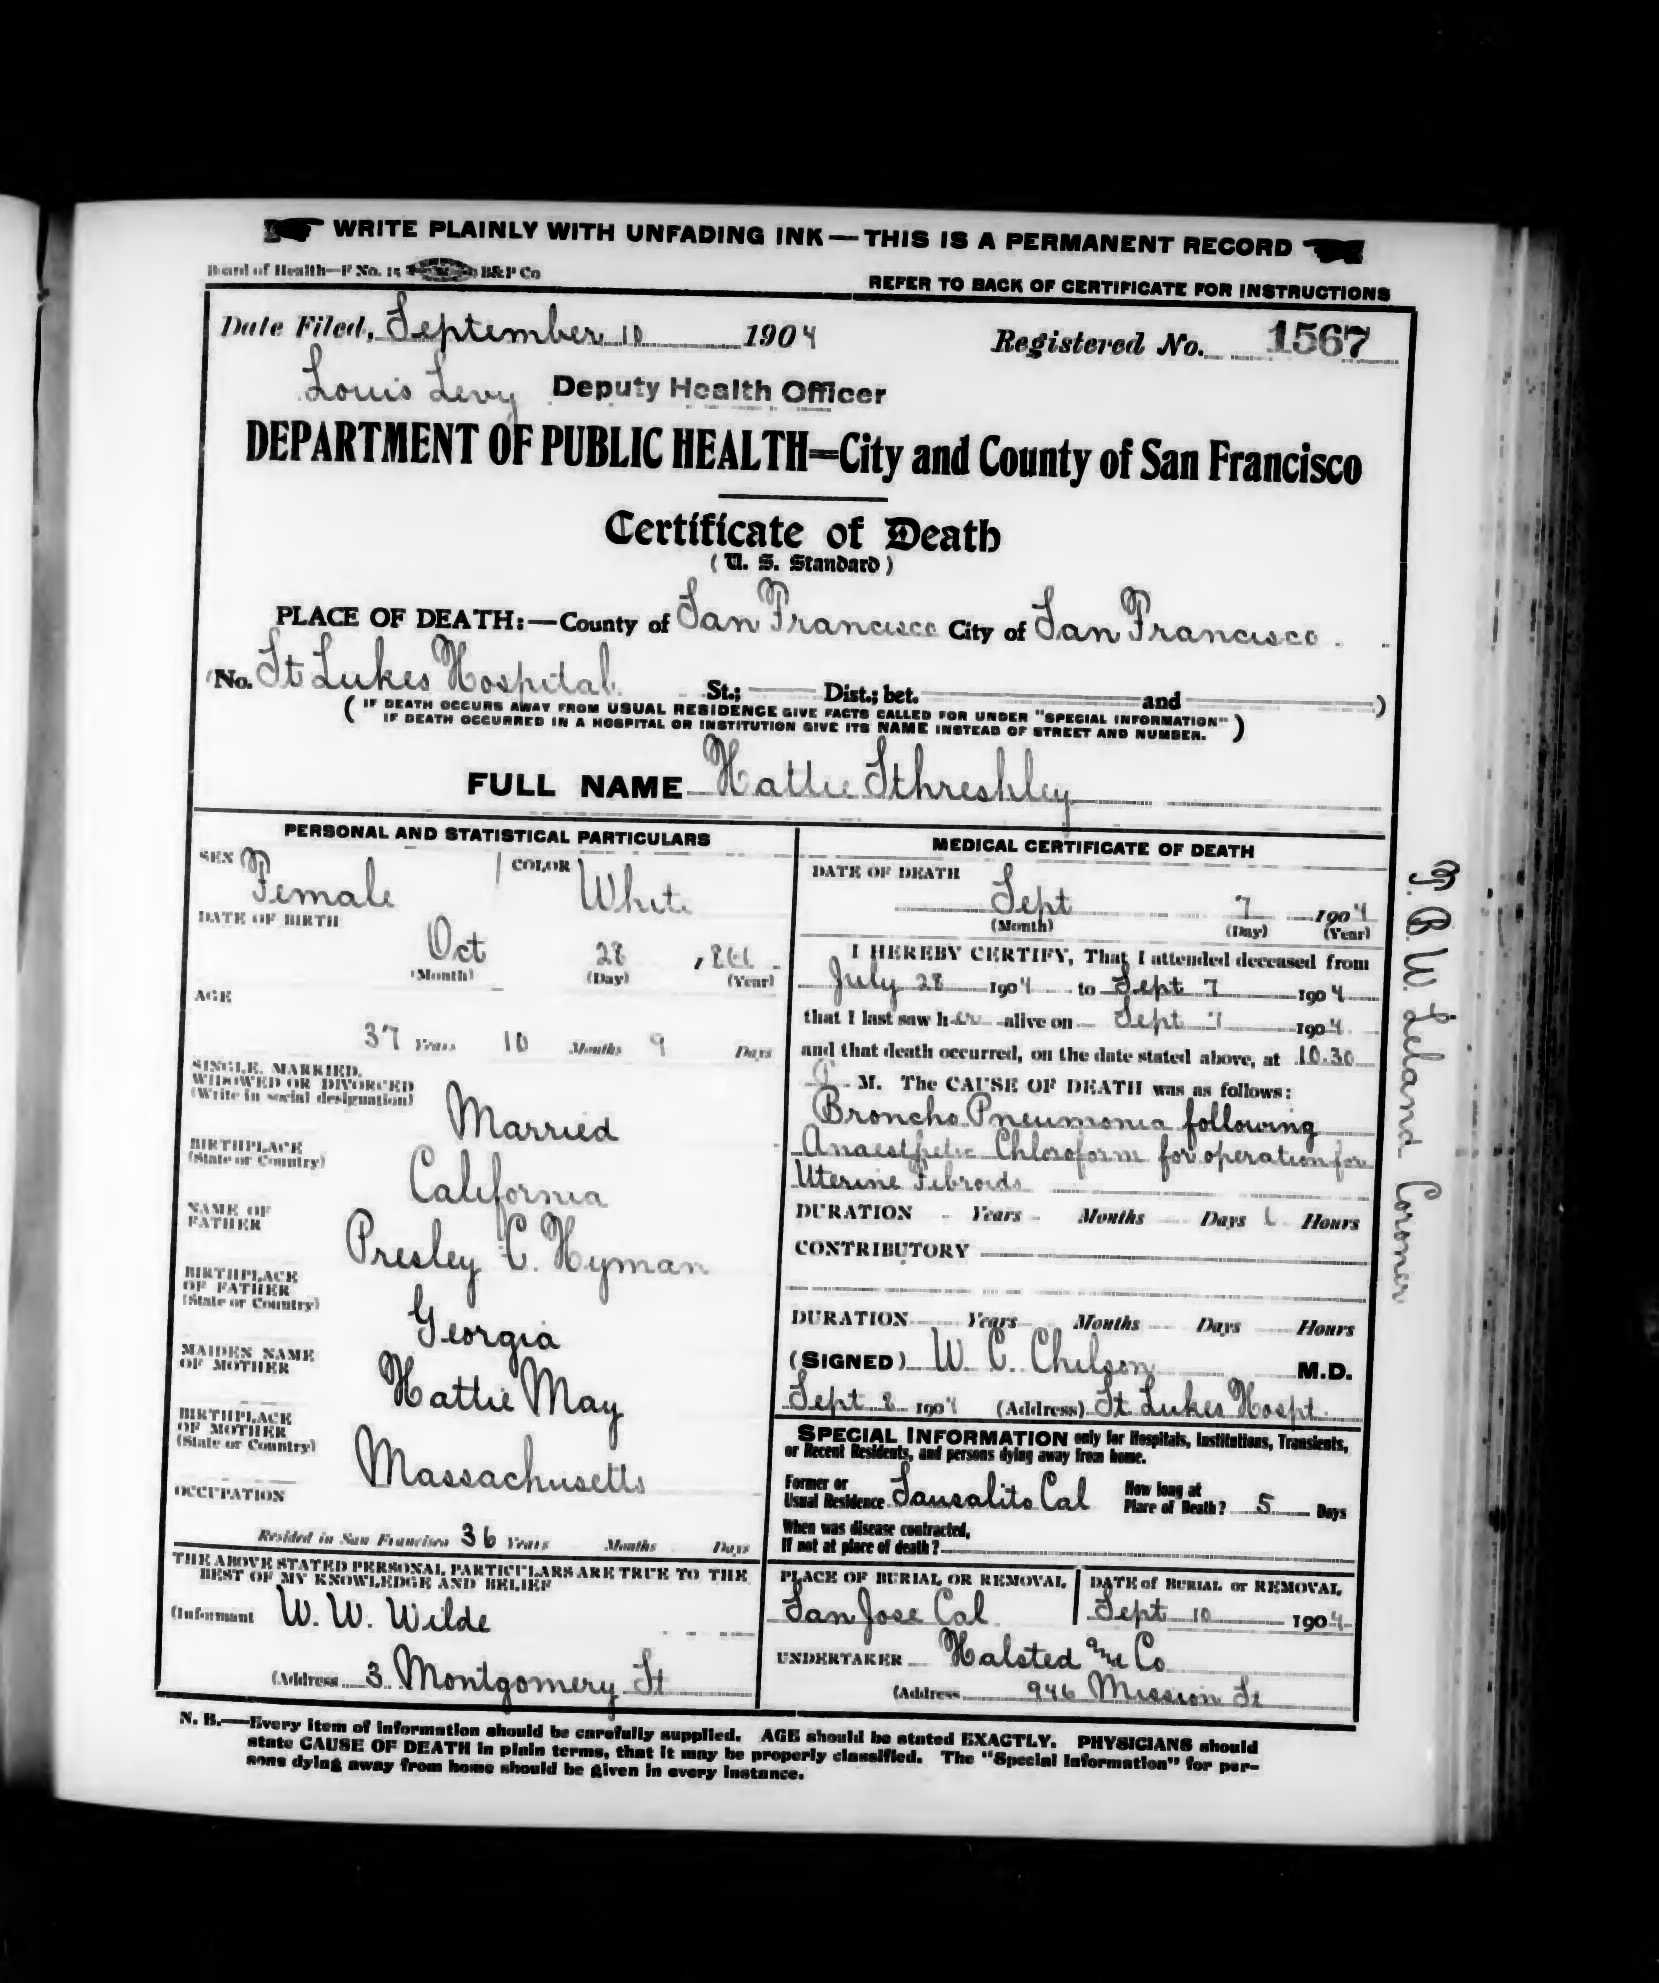 WRITE PLAINLY WITH UNFADING INK—THIS IS A PERMANENT RECORD
Board of Health—F No. 15 B&P Co
REFER TO BACK OF CERTIFICATE FOR INSTRUCTIONS
Date Filed, September 10 1904 Registered No. 1567
Louis Levy Deputy Health Officer
DEPARTMENT OF PUBLIC HEALTH=City and County of San Francisco
Certificate of Death
(U. S. Standard)
PLACE OF DEATH:—County of San Francisco City of San Francisco.
(No. St Lukes Hospital St.; Dist.; bet. and )
( IF DEATH OCCURS AWAY FROM USUAL RESIDENCE GIVE FACTS CALLED FOR UNDER "SPECIAL INFORMATION"
IF DEATH OCCURRED IN A HOSPITAL OR INSTITUTION GIVE ITS NAME INSTEAD OF STREET AND NUMBER. )
FULL NAME Hattie Sthreshley
PERSONAL AND STATISTICAL PARTICULARS
SEX Female COLOR White
DATE OF BIRTH
Oct 28, 1866
(Month) (Day) (Year)
AGE
37 Years 10 Months 9 Days
SINGLE, MARRIED,
WIDOWED OR DIVORCED
(Write in social designation)
Married
BIRTHPLACE
(State or Country)
California
NAME OF
FATHER
Presley C. Hyman
BIRTHPLACE
OF FATHER
(State or Country)
Georgia
MAIDEN NAME
OF MOTHER
Hattie May
BIRTHPLACE
OF MOTHER
(State or Country)
Massachusetts
OCCUPATION
Resided in San Francisco 36 Years Months Days
THE ABOVE STATED PERSONAL PARTICULARS ARE TRUE TO THE
BEST OF MY KNOWLEDGE AND BELIEF
(Informant W. W. Wilde
(Address 3 Montgomery St
MEDICAL CERTIFICATE OF DEATH
DATE OF DEATH
Sept 7 1904
(Month) (Day) (Year)
I HEREBY CERTIFY, That I attended deceased from
July 28 1904 to Sept 7 1904
that I last saw her alive on Sept 7 1904
and that death occurred, on the date stated above, at 10.30
P. M. The CAUSE OF DEATH was as follows:
Broncho Pneumonia following
Anaesthetic Chloroform for operation for
Uterine Fibroids
DURATION Years Months Days Hours
CONTRIBUTORY
DURATION Years Months Days Hours
(SIGNED) W. C. Chilson M.D.
Sept 8 1904 (Address) St Lukes Hospt.
SPECIAL INFORMATION only for Hospitals, Institutions, Transients,
or Recent Residents, and persons dying away from home.
Former or
Usual Residence Sausalito Cal
How long at
Place of Death? 5 Days
When was disease contracted,
If not at place of death?
PLACE OF BURIAL OR REMOVAL
San Jose Cal
DATE of BURIAL or REMOVAL
Sept 10 1904
UNDERTAKER Halsted and Co
(Address 946 Mission St
T. B. W. Leland Coroner
N. B.—Every item of information should be carefully supplied. AGE should be stated EXACTLY. PHYSICIANS should
state CAUSE OF DEATH in plain terms, that it may be properly classified. The "Special Information" for per-
sons dying away from home should be given in every instance.